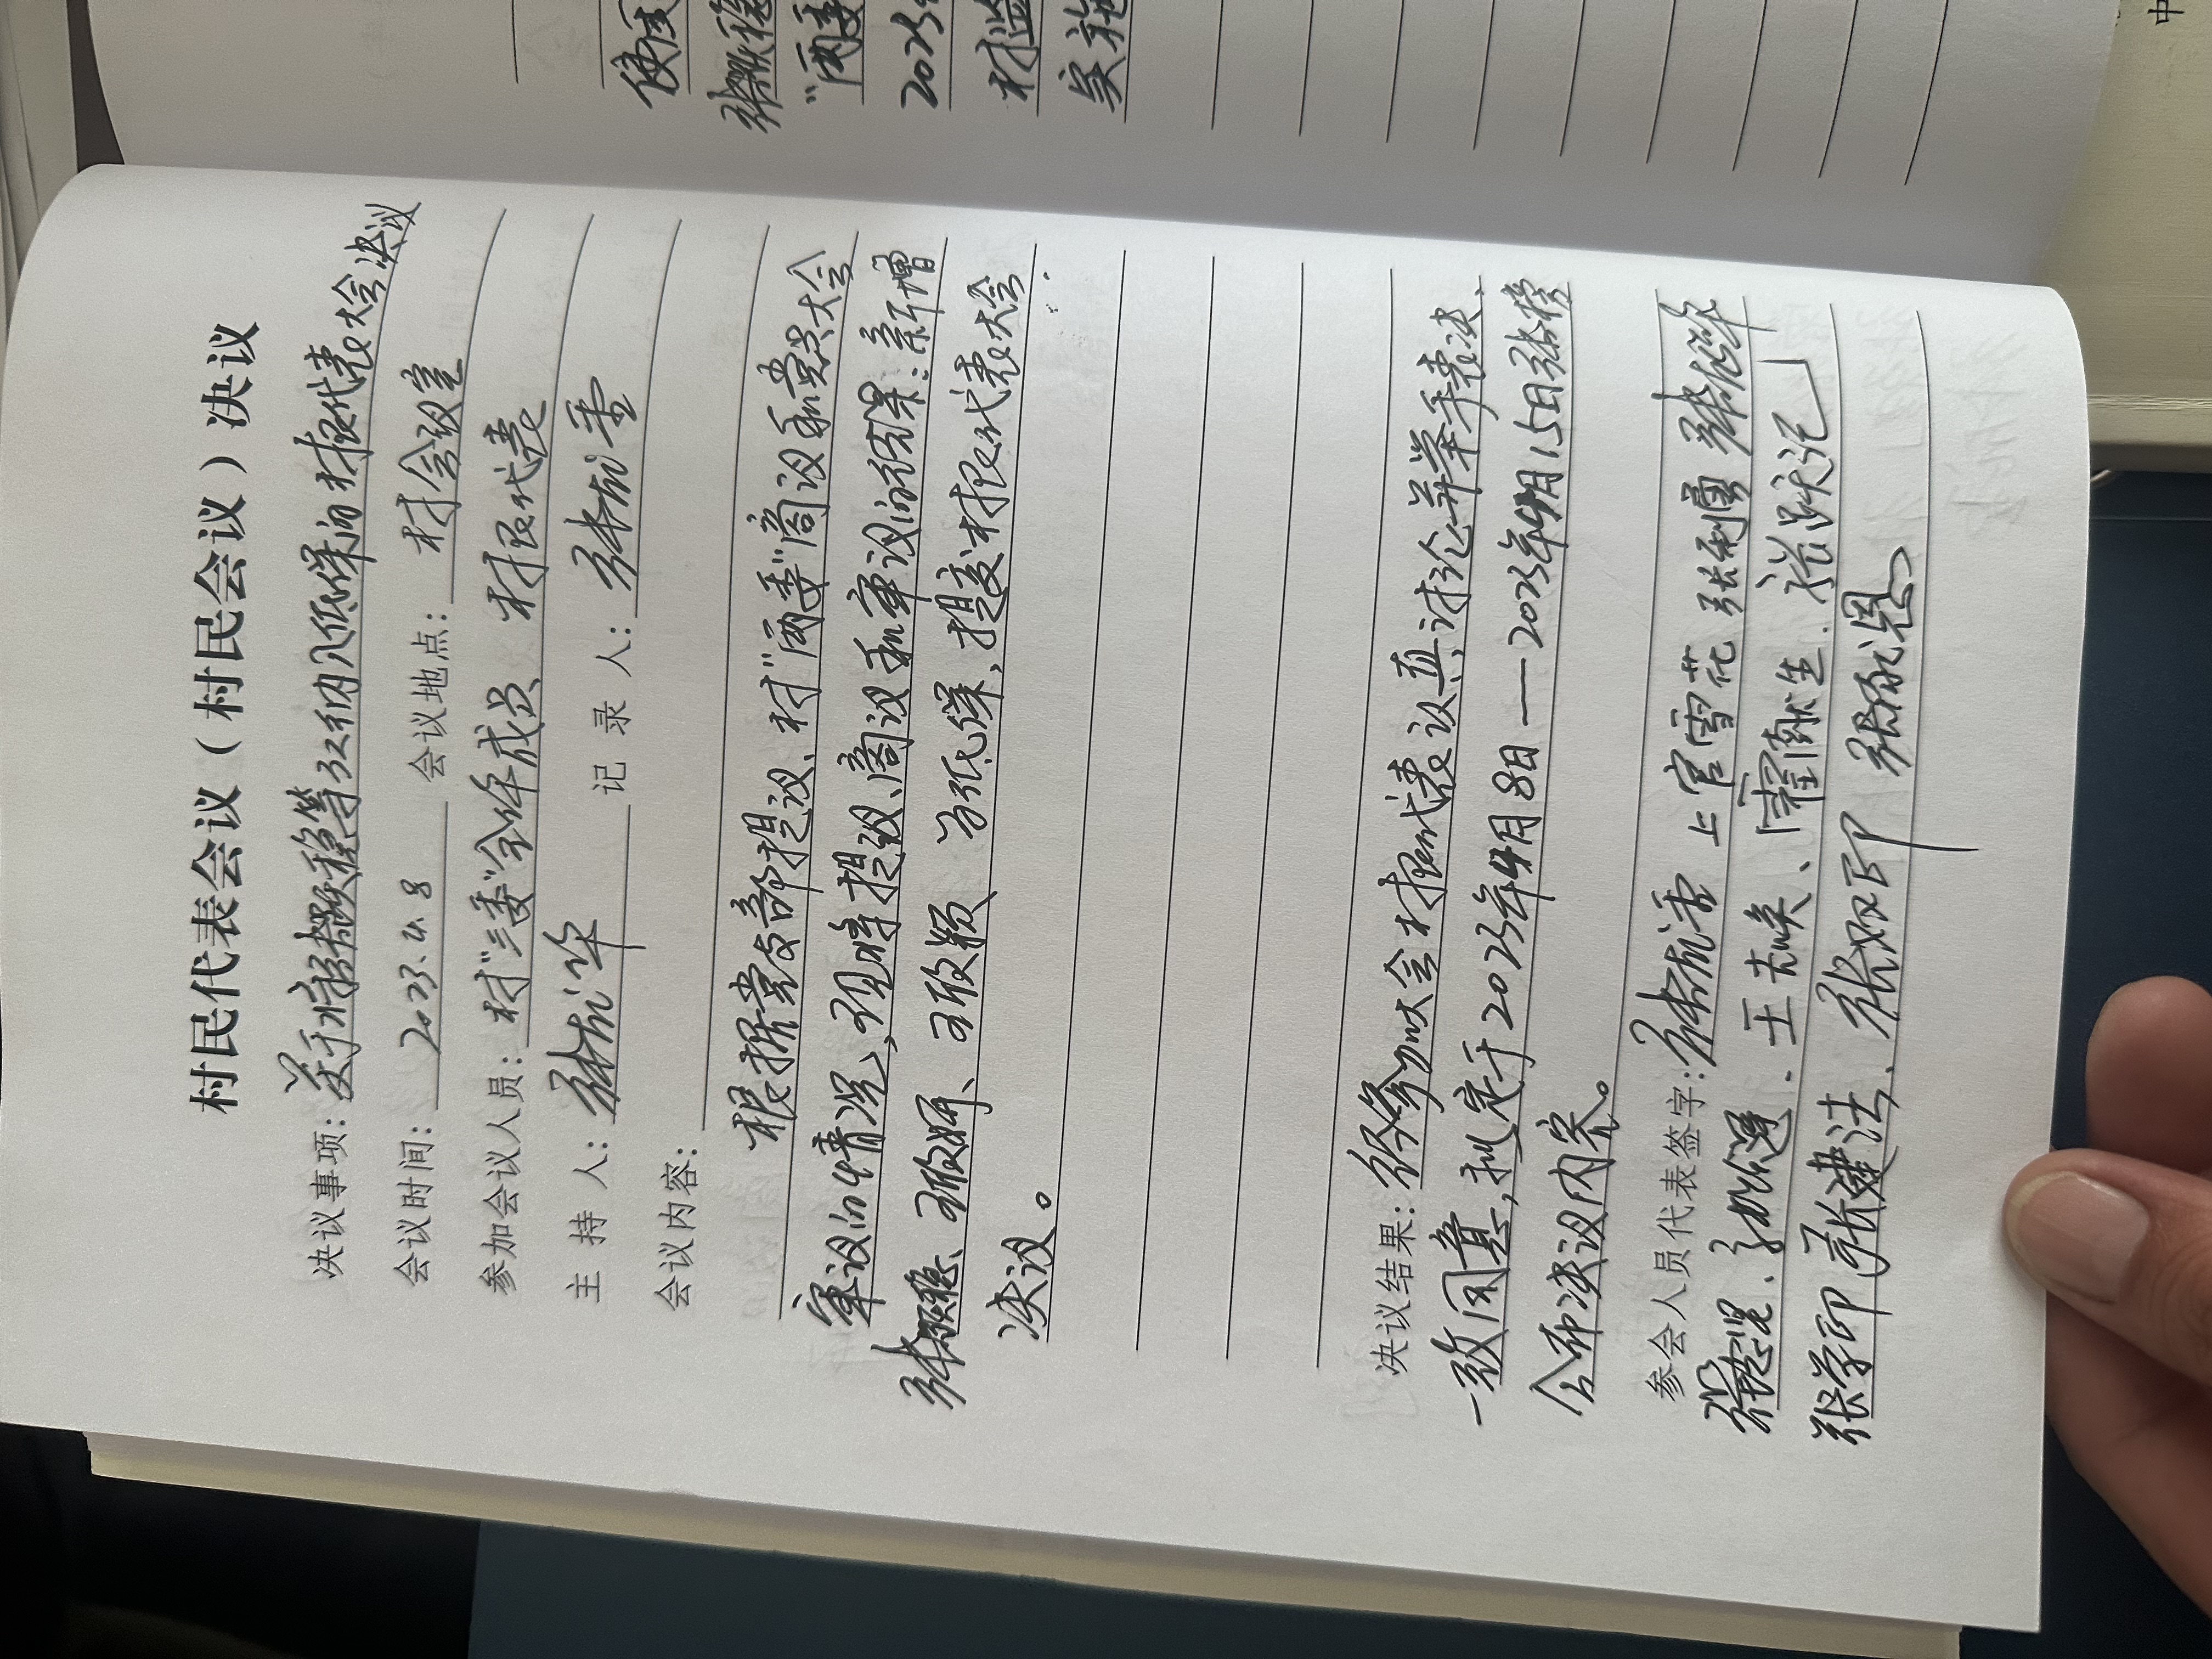 村民代表会议（村民会议）决议
决议事项：关于将张跃稳等3人纳入低保的村民代表大会决议
会议时间：2023.4.8 会议地点：村会议室
参加会议人员：村“三委”全体成员 村民代表
主 持 人：张 华 记 录 人：张
会议内容：
根据党支部提议、村“两委”商议和党员大会
审议的情况，现将提议、商议和审议的结果：新增
张跃稳、王欣妍、王欣颖 为低保，提交村民代表大会
决议。
决议结果：经参加大会村民代表议真讨论并举手表决、
一致同意，拟定于2023年4月8日——2023年4月15日张榜
公布决议内容。
参会人员代表签字：张 上官雪花 张利勇 张 华
王 焕、霍献生、张跃记
张学印 张建法、张双印 张 恩
使用
张跃稳
“两委
2023
村监
实施
中